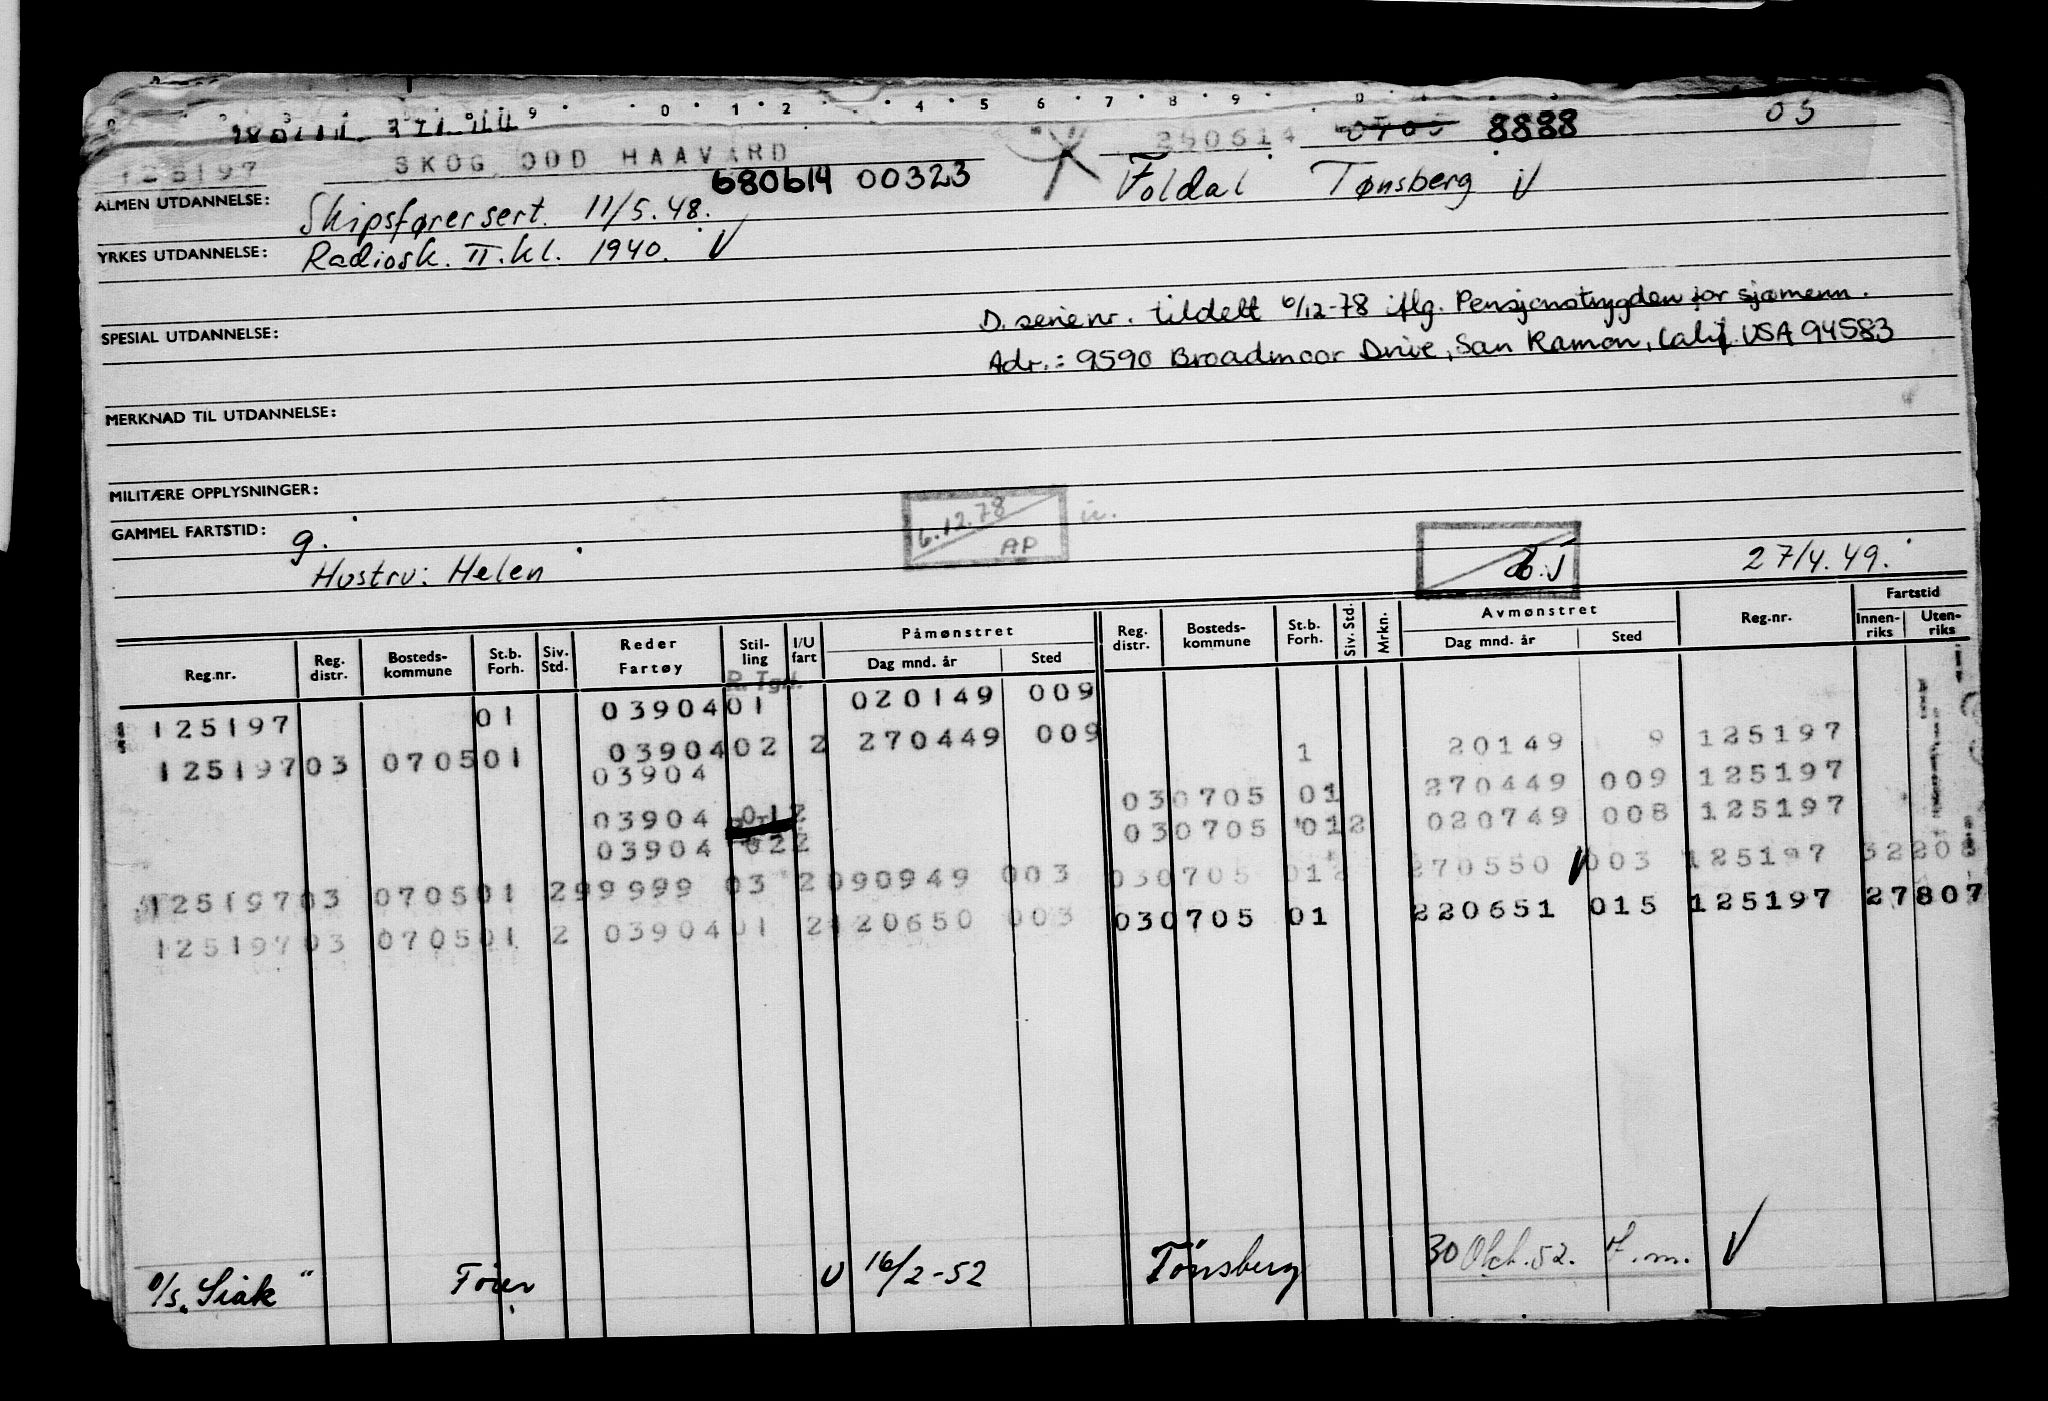 0 1 2 4 5 6 7 8 9
125197 SKOG ODD HAAVARD 280614 0705 8888 05
680614 00323 Foldal Tønsberg
ALMEN UTDANNELSE: Skipsførersert. 11/5.48.
YRKES UTDANNELSE: Radiosk. II. kl. 1940.
SPESIAL UTDANNELSE:
D. serienr. tildelt 6/12-78 iflg. Pensjonstrygden for sjømenn.
Adr.: 9590 Broadmoor Drive, San Ramon, Calif. USA 94583
MERKNAD TIL UTDANNELSE:
MILITÆRE OPPLYSNINGER:
GAMMEL FARTSTID: g.
6.12.78 AP
Hustru: Helen
27/4.49.
Reg.nr. Reg. distr. Bosteds-kommune St.b. Forh. Siv. Std. Reder Fartøy Stil-ling I/U fart Påmønstret Dag mnd. år Sted Reg. distr. Bosteds-kommune St.b. Forh. Siv. Std. Mrkn. Avmønstret Dag mnd. år Sted Reg.nr. Fartstid Innen-riks Uten-riks
R. Tgr.
125197 01 03904 01 020149 009
1 20149 9 125197
125197 03 0705 01 03904 02 2 270449 009
03904 03 0705 01 270449 009 125197
03904 01 2 03 0705 01 2 020749 008 125197
03904 02 2
125197 03 0705 01 2 99999 03 2 090949 003 03 0705 01 2 270550 003 125197 32208
125197 03 0705 01 2 03904 01 2 120650 003 03 0705 01 220651 015 125197 27807
"Siak" U 16/2-52 Tønsberg 30 Okt. 52. f.m.